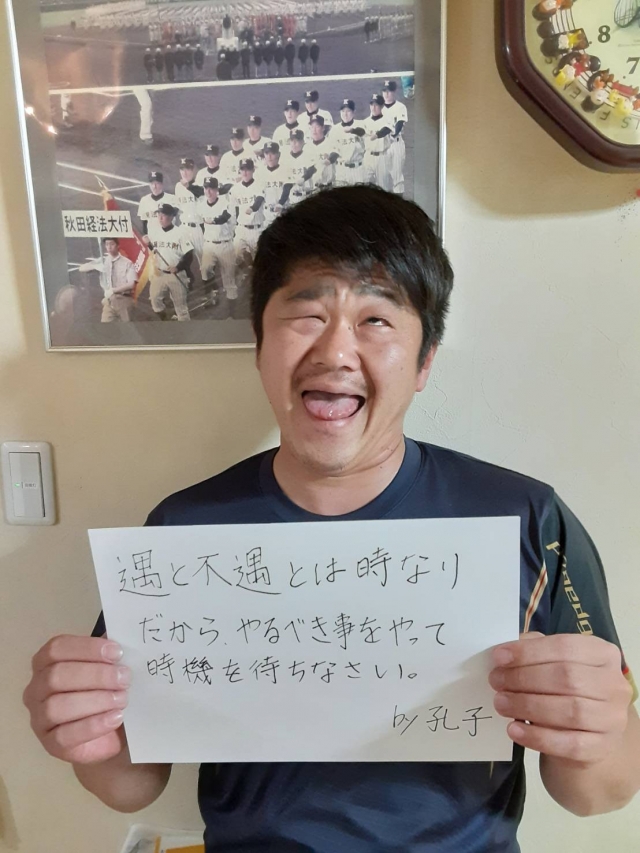 8
7
秋田経法大付
遇と不遇とは時なり
だから、やるべき事をやって
時機を待ちなさい。
by 孔子